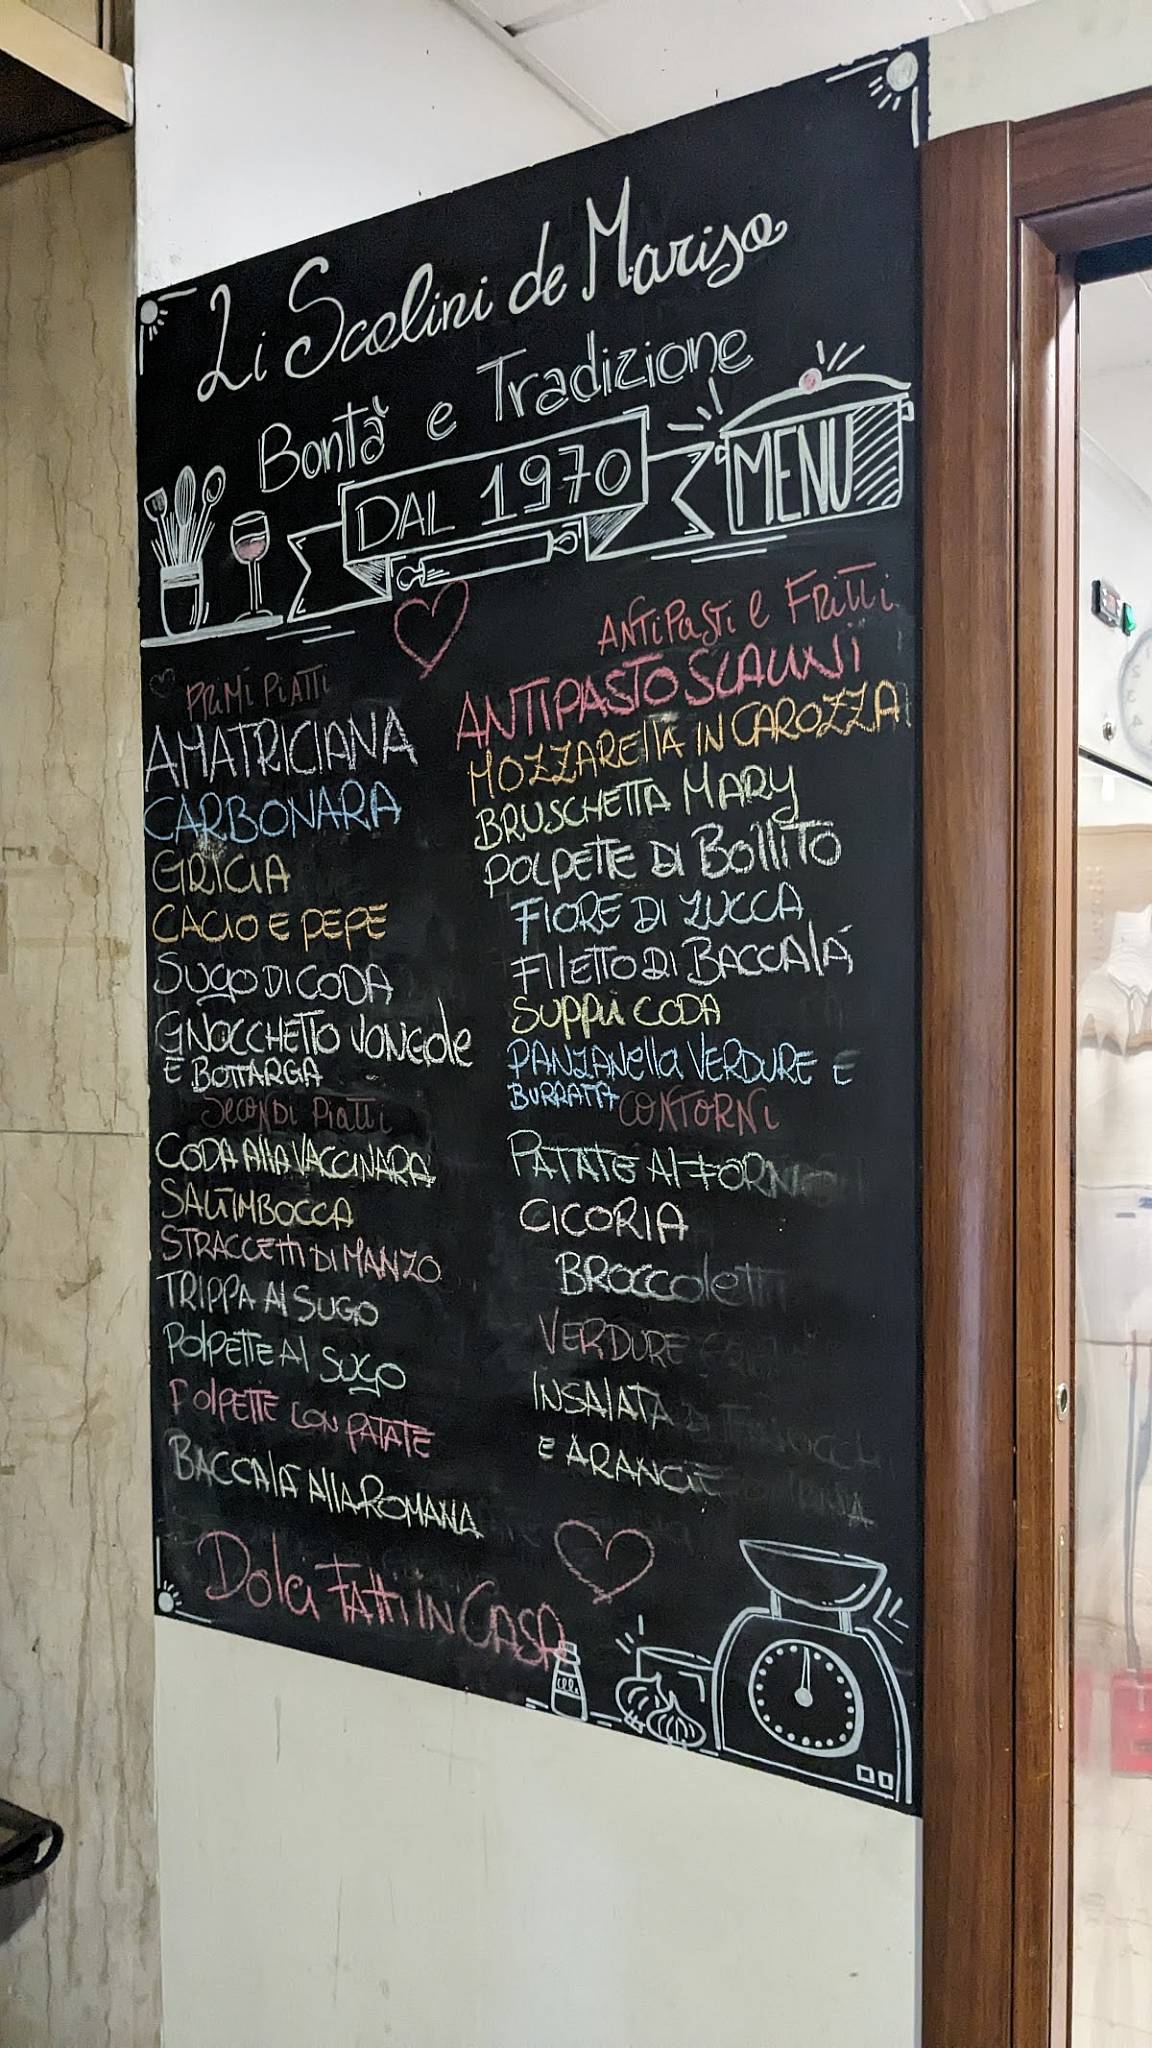 Li Scalini de Marisa
Bontà e Tradizione
DAL 1970
MENU
PRIMI PIATTI
AMATRICIANA
CARBONARA
GRICIA
CACIO E PEPE
SUGO DI CODA
GNOCCHETTO VONGOLE
E BOTTARGA
SECONDI PIATTI
CODA AllA VACCINARA
SALTIMBOCCA
STRACCETTI DI MANZO
TRIPPA Al SUGO
POLPETTE Al SUGO
POLPETTE CON PATATE
BACCALÀ AllA ROMANA
Dolci FATTI IN CASA
ANTIPASTI e FRITTI
ANTIPASTO SCALINI
MOZZARELLA IN CAROZZA
BRUSCHETTA MARY
POLPETTE DI BOLLITO
FIORE DI ZUCCA
FILETTO DI BACCALÁ
SUPPLì CODA
PANZANELLA VERDURE E
BURRATA
CONTORNI
PATATE Al FORNO
CICORIA
BROCCOLETTI
VERDURE
INSALATA DI FINOCCHI
E ARANCE